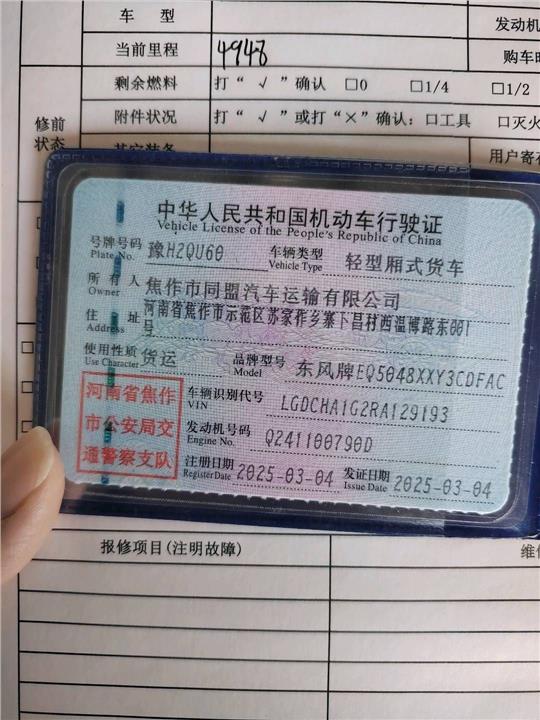 车 型
发动机
当前里程 4948
购车时
剩余燃料 打“ √ ”确认 □0 □1/4 □1/2
修前状态
附件状况 打“ √ ”或打“×”确认：□工具 □灭火
其它装备
用户寄存
中华人民共和国机动车行驶证
Vehicle License of the People's Republic of China
号牌号码 豫H2QU60 车辆类型 轻型厢式货车
Plate No. Vehicle Type
所有人 焦作市同盟汽车运输有限公司
Owner
住址 河南省焦作市示范区苏家作乡寨卜昌村西温博路东001
Address 号
使用性质 货运 品牌型号 东风牌EQ5048XXY3CDFAC
Use Character Model
河南省焦作
市公安局交
通警察支队
车辆识别代号 LGDCHA1G2RA129193
VIN
发动机号码 Q241100790D
Engine No.
注册日期 2025-03-04 发证日期 2025-03-04
Register Date Issue Date
报修项目(注明故障)